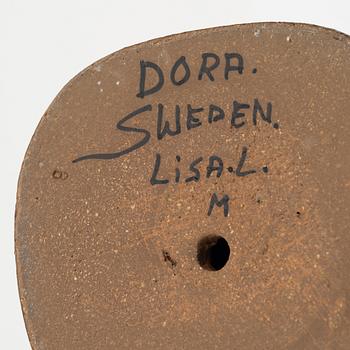 DORA.
SWEDEN.
LISA.L.
M